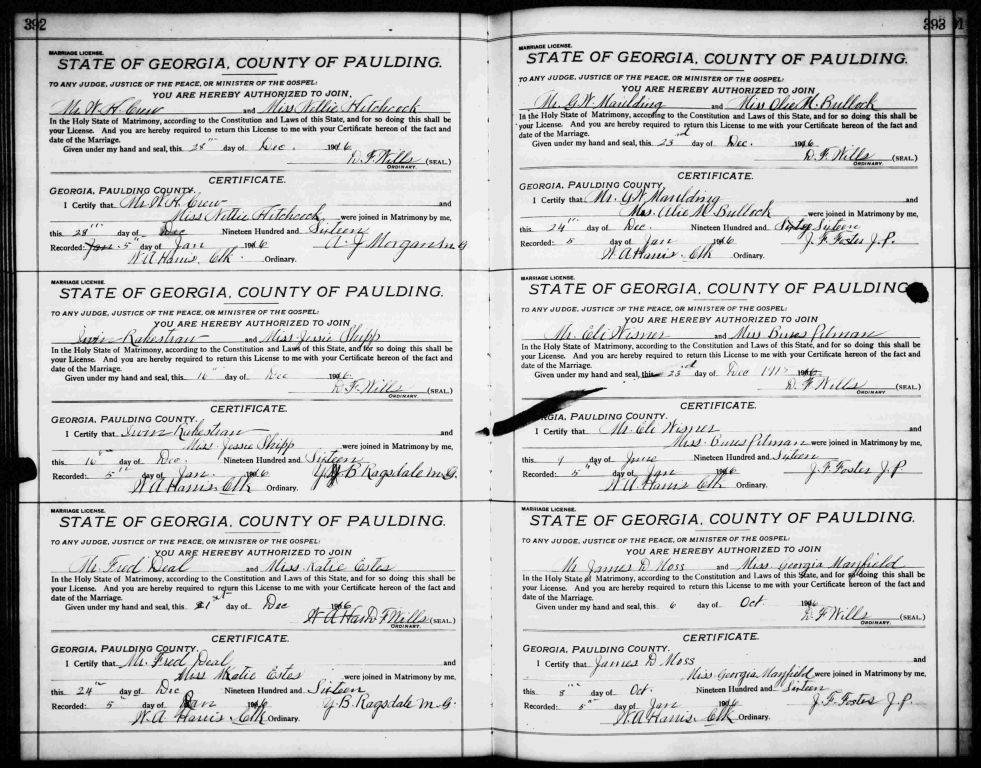 392
MARRIAGE LICENSE.
STATE OF GEORGIA, COUNTY OF PAULDING.
TO ANY JUDGE, JUSTICE OF THE PEACE, OR MINISTER OF THE GOSPEL:
YOU ARE HEREBY AUTHORIZED TO JOIN
Mr. W. H. Crew and Miss Nettie Hitchcock
In the Holy State of Matrimony, according to the Constitution and Laws of this State, and for so doing this shall be
your License. And you are hereby required to return this License to me with your Certificate hereon of the fact and
date of the Marriage.
Given under my hand and seal, this 28" day of Dec. 1916
D. F. Wills (SEAL.)
ORDINARY.
CERTIFICATE.
GEORGIA, PAULDING COUNTY.
I Certify that Mr. W. H. Crew and
Miss Nettie Hitchcock were joined in Matrimony by me,
this 28" day of Dec Nineteen Hundred and Sixteen
Recorded: Jan. 5" day of Jan 1916 A. J. Morgan M.G
W. A Harris. Clk. Ordinary.
MARRIAGE LICENSE.
STATE OF GEORGIA, COUNTY OF PAULDING.
TO ANY JUDGE, JUSTICE OF THE PEACE, OR MINISTER OF THE GOSPEL:
YOU ARE HEREBY AUTHORIZED TO JOIN
Irvin Rakestraw and Miss Jessie Shipp
In the Holy State of Matrimony, according to the Constitution and Laws of this State, and for so doing this shall be
your License. And you are hereby required to return this License to me with your Certificate hereon of the fact and
date of the Marriage.
Given under my hand and seal, this 16" day of Dec 1916.
D. F. Wills (SEAL.)
ORDINARY.
CERTIFICATE.
GEORGIA, PAULDING COUNTY.
I Certify that Irvin Rakestraw and
Miss Jessie Shipp were joined in Matrimony by me,
this 16" day of Dec. Nineteen Hundred and Sixteen
Recorded: 5" day of Jan. 1916 B Ragsdale M.G.
W A Harris. Clk Ordinary.
MARRIAGE LICENSE.
STATE OF GEORGIA, COUNTY OF PAULDING.
TO ANY JUDGE, JUSTICE OF THE PEACE, OR MINISTER OF THE GOSPEL:
YOU ARE HEREBY AUTHORIZED TO JOIN
Mr. Fred Deal and Miss Katie Estes
In the Holy State of Matrimony, according to the Constitution and Laws of this State, and for so doing this shall be
your License. And you are hereby required to return this License to me with your Certificate hereon of the fact and
date of the Marriage.
Given under my hand and seal, this 21st day of Dec 1916
W A Har D F Wills (SEAL.)
ORDINARY.
CERTIFICATE.
GEORGIA, PAULDING COUNTY.
I Certify that Mr. Fred Deal and
Miss Katie Estes were joined in Matrimony by me,
this 24" day of Dec Nineteen Hundred and Sixteen
Recorded: 5" day of Jan 1916 B. Ragsdale M.G.
W.A Harris. Clk Ordinary.
393
MARRIAGE LICENSE.
STATE OF GEORGIA, COUNTY OF PAULDING.
TO ANY JUDGE, JUSTICE OF THE PEACE, OR MINISTER OF THE GOSPEL:
YOU ARE HEREBY AUTHORIZED TO JOIN
Mr. G W Maulding and Miss Olie M. Bullock
In the Holy State of Matrimony, according to the Constitution and Laws of this State, and for so doing this shall be
your License. And you are hereby required to return this License to me with your Certificate hereon of the fact and
date of the Marriage.
Given under my hand and seal, this 23rd day of Dec. 1916
D. F. Wills (SEAL.)
ORDINARY.
CERTIFICATE.
GEORGIA, PAULDING COUNTY.
I Certify that Mr. G W Maulding and
Miss. Olie M Bullock were joined in Matrimony by me,
this 24" day of Dec. Nineteen Hundred and Sixteen
Recorded: 5 day of Jan 1916 J. F. Foster J.P.
W. A Harris. Clk Ordinary.
MARRIAGE LICENSE.
STATE OF GEORGIA, COUNTY OF PAULDING
TO ANY JUDGE, JUSTICE OF THE PEACE, OR MINISTER OF THE GOSPEL:
YOU ARE HEREBY AUTHORIZED TO JOIN
Mr. Eli Wisner and Miss Pitman
In the Holy State of Matrimony, according to the Constitution and Laws of this State, and for so doing this shall be
your License. And you are hereby required to return this License to me with your Certificate hereon of the fact and
date of the Marriage.
Given under my hand and seal, this 23rd day of Dec 1916
D. F. Wills (SEAL.)
ORDINARY.
CERTIFICATE.
GEORGIA, PAULDING COUNTY.
I Certify that Mr. Eli Wisner and
Miss. Pitman were joined in Matrimony by me,
this day of June Nineteen Hundred and Sixteen
Recorded: 5" day of Jan 1916 J. F. Foster J.P.
W A Harris Clk Ordinary.
MARRIAGE LICENSE.
STATE OF GEORGIA, COUNTY OF PAULDING.
TO ANY JUDGE, JUSTICE OF THE PEACE, OR MINISTER OF THE GOSPEL:
YOU ARE HEREBY AUTHORIZED TO JOIN
Mr James D Moss and Miss. Georgia Mayfield
In the Holy State of Matrimony, according to the Constitution and Laws of this State, and for so doing this shall be
your License. And you are hereby required to return this License to me with your Certificate hereon of the fact and
date of the Marriage.
Given under my hand and seal, this 6 day of Oct 1916
D. F. Wills (SEAL.)
ORDINARY.
CERTIFICATE.
GEORGIA, PAULDING COUNTY.
I Certify that James D Moss and
Miss Georgia Mayfield were joined in Matrimony by me,
this 8" day of Oct. Nineteen Hundred and Sixteen
Recorded: 5" day of Jan 1916 J. F. Foster J.P.
W. A Harris. Clk Ordinary.